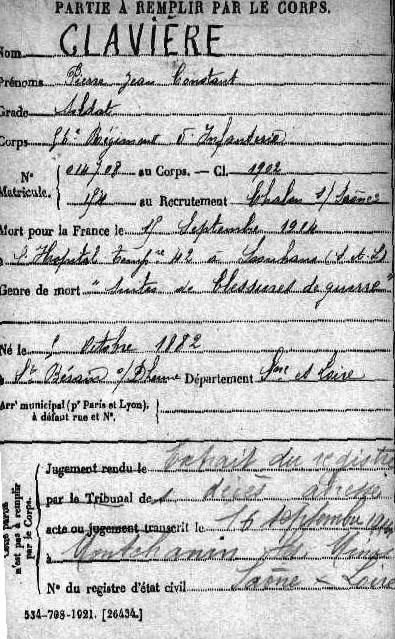 PARTIE À REMPLIR PAR LE CORPS.
Nom CLAVIÈRE
Prénoms Pierre Jean Constant
Grade Soldat
Corps 56e Régiment d'Infanterie
N° 014708 au Corps. — Cl. 1902
Matricule. au Recrutement Chalon s/Saône
Mort pour la France le Septembre 1914
à l'Hopital Temp re 42 à Louhans (S. & L)
Genre de mort "Suites de blessures de guerre"
Né le Octobre 1882
à St Bérain s/Dheune Département Sne et Loire
Arr^t municipal (p^r Paris et Lyon),
à défaut rue et N°.
Cette partie
n'est pas à remplir
par le Corps.
Jugement rendu le Extrait du registre
par le Tribunal de décès
acte ou jugement transcrit le septembre
à Montchanin les Mines
N° du registre d'état civil Saône & Loire
534-708-1921. [26434.]